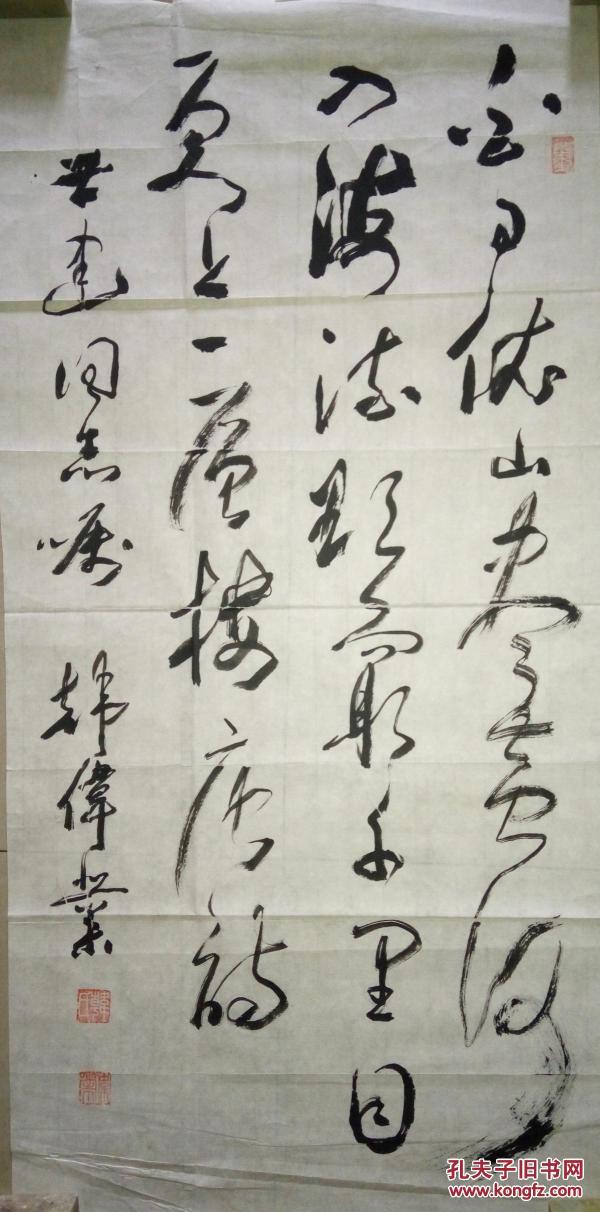 白日依山盡黄河
入海流欲窮千里目
更上一層樓唐詩
世建同志嘱 韓偉業
孔夫子旧书网
www.kongfz.com